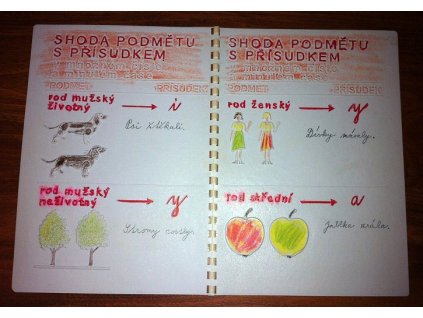 SHODA PODMĚTU
S PŘÍSUDKEM
v množném čísle
a minulém čase
PODMĚT PŘÍSUDEK
rod mužský
životný
i
Psi štěkali.
rod mužský
neživotný
y
Stromy rostly.
SHODA PODMĚTU
S PŘÍSUDKEM
v množném čísle
a minulém čase
PODMĚT PŘÍSUDEK
rod ženský
y
Dívky mávaly.
rod střední
a
Jablka zrála.